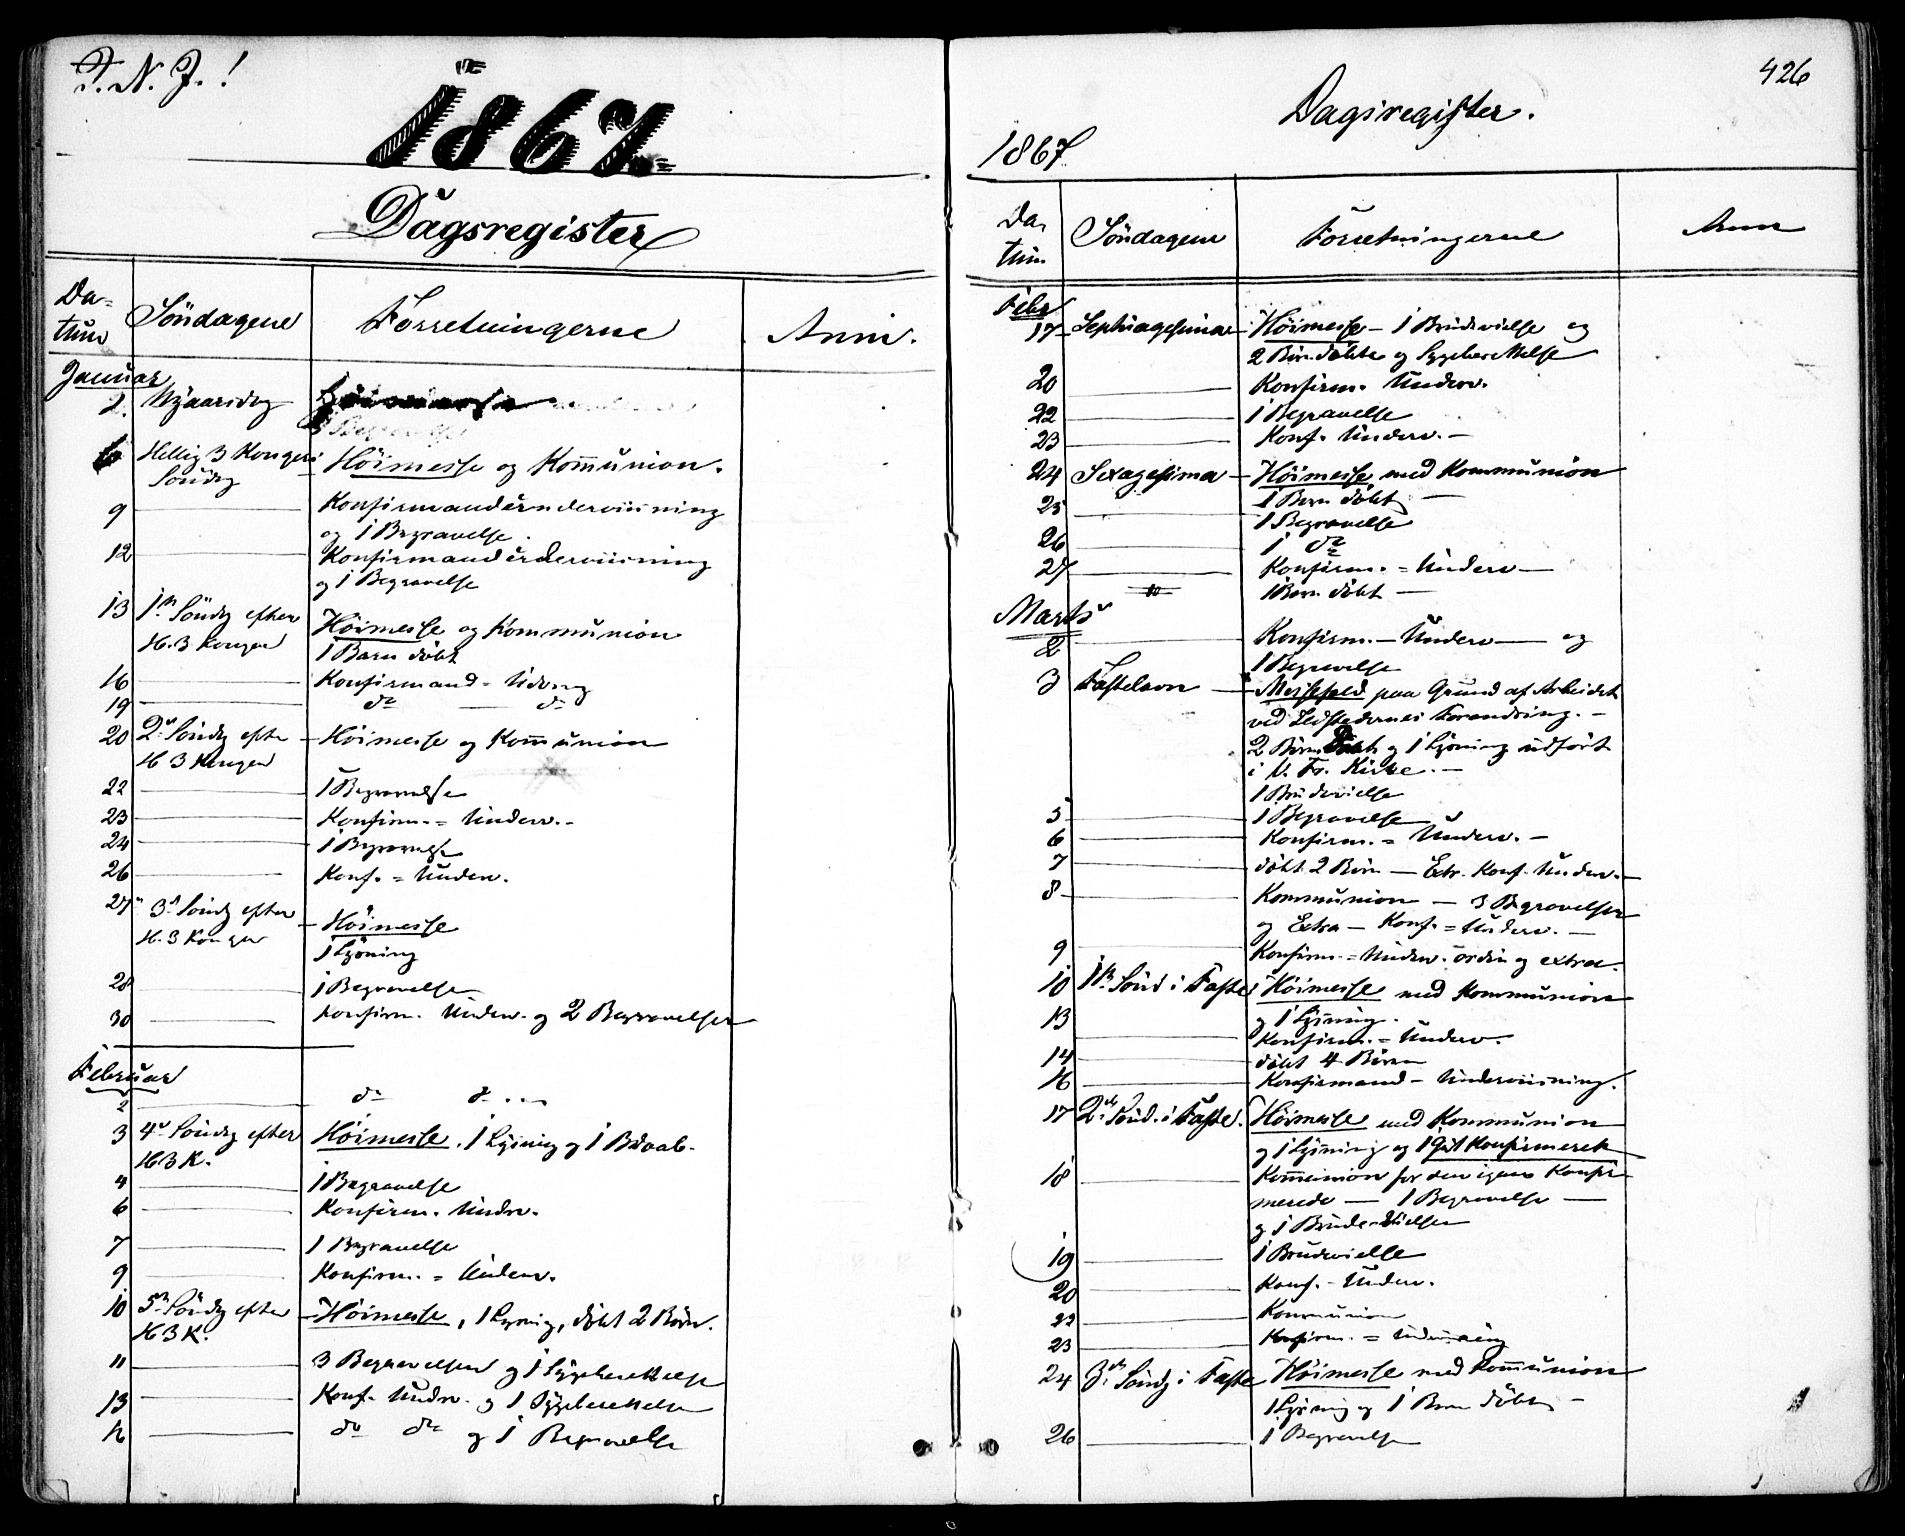 J. N. J.!
1867.
Dagsregister
Da=
tum
Söndagene
Forretningerne
Anm.
Januar
1. Nÿaarsdg
1 Begravelse
6 Hellig 3 Konger Höimesse og Kom̄union.
Söndg
9 Konfirmandunderviisning
og 1 Begravelse.
12 Konfirmandunderviisning
og 1 Begravelse
13 1ste Söndg efter Höimesse og Kommunion
H. 3 Konger 1 Barn döbt
16 Konfirmand=
19 do do
20 2den Söndg efter Höimesse og Kom̄union
H 3 Konger
22 1 Begravelse
23 Konfirm.=Underv.-
24 1 Begravelse
26 Konf.=Underv.
27 3die Söndg efter Höimesse
H. 3 Konger 1 Lysning
28 1 Begravelse
30 Konfirm. Underv. og 2 Begravelser
Februar
2 do do
3 4de Söndg efter Höimesse. 1 Lysning og 1 Bdaab.
H3K.
4 1 Begravelse
6 Konfirm. Undrv.
7 1 Begravelse
9 Konfirm.=Underv.
10 5te Söndg efter Höimesse, 1 Lysning, döbt 2 Börn.
H3K.
11 3 Begravelser og 1 Sygeberettelse
13 Konf. Undrv. og 1 Sygeberettelse
16 do do og 1 Begravelse
426
Dagsregister.
1867
Da-
tum
Söndagene
Forretningerne
Anm
Febr
17 Septuagesima Höimesse - 1 Brudevielse og
2 Börn döbte og Sygeberettelse
20 Konfirm. Underv.
22 1 Begravelse
23 Konf. Underv. -
24 Sexagesima - Höimesse med Kommunion
1 Barn döbt -
25 1 Begravelse
26 1 do
27 Konfirm.=Underv -
1 Barn döbt -
Marts
2 Konfirm.-Underv - og
1 Begravelse
3 Fastelavn - Messefald paa Grund af Arbeidet
ved Ildstedernes Forandring. -
2 Börn Döbt og 1 Lysning udfört
i V. Fr. Kirke. -
1 Brudevielse
5 1 Begravelse
6 Konfirm.=Underv. -
7 döbt 2 Börn - Extr. Konf. Underv. -
8 Kommunion - 3 Begravelser
og Extra - Konf.=Underv. -
9 Konfirm.=Underv. ordin og extra.
10 1ste Sönd i Faste Höimesse med Kommunion
og 1 Lysning.
13 Konfirm.=Underv.
14 döbt 4 Börn
16 Konfirmand-Underviisning.
17 2den Sönd. i Faste. Höimesse med Kommunion
og 1 Lysning og 1 Gut Konfirmeret
18 Kom̄union for den igaar Konfir-
merede - 1 Begravelse -
og 1 Brude-Vielse
19 1 Brudevielse
20 Konf.-Underv.
22 Kommunion
23 Konfirm.=Underviisning
24 3die Söndg i Faste Höimesse med Kom̄union
1 Lysning og 1 Barn döbt -
26 1 Begravelse